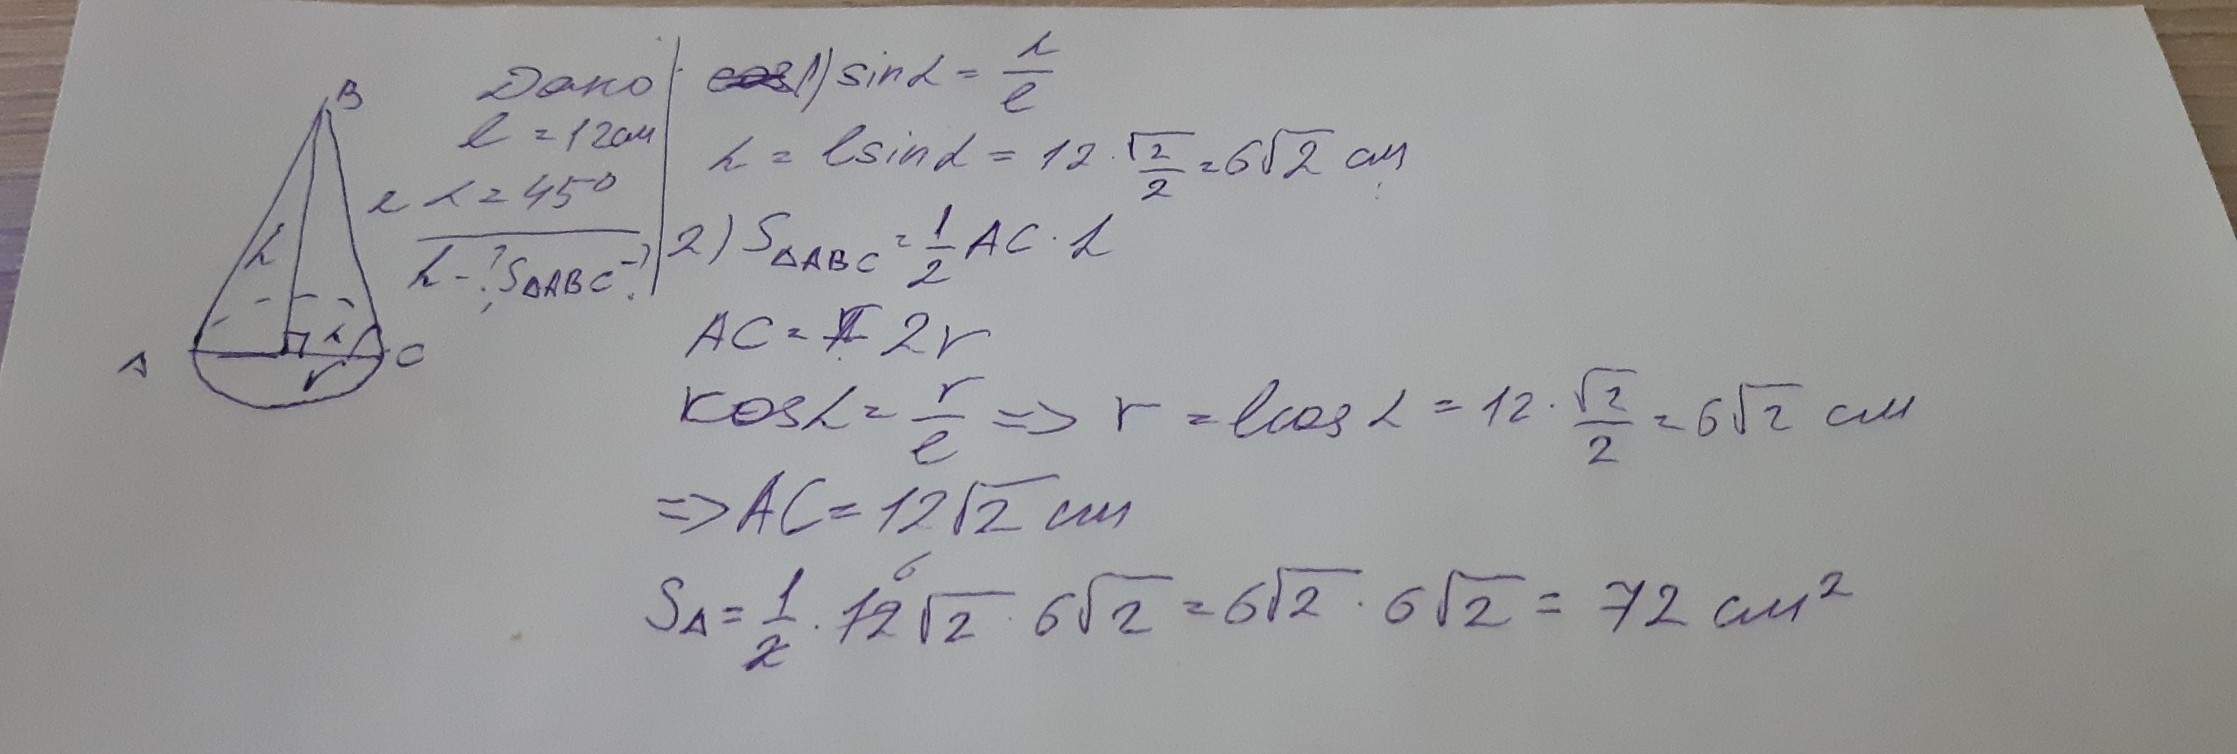 B
A
C
h
r
α
Дано
l = 12см
l α = 45°
h - ? S△ABC - ?
1) sinα = h/l
h = l sinα = 12 · √2/2 = 6√2 см
2) S△ABC = 1/2 AC · h
AC = 2r
cosα = r/l => r = l cosα = 12 · √2/2 = 6√2 см
=> AC = 12√2 см
S△ = 1/2 · 12 6 √2 · 6√2 = 6√2 · 6√2 = 72 см²